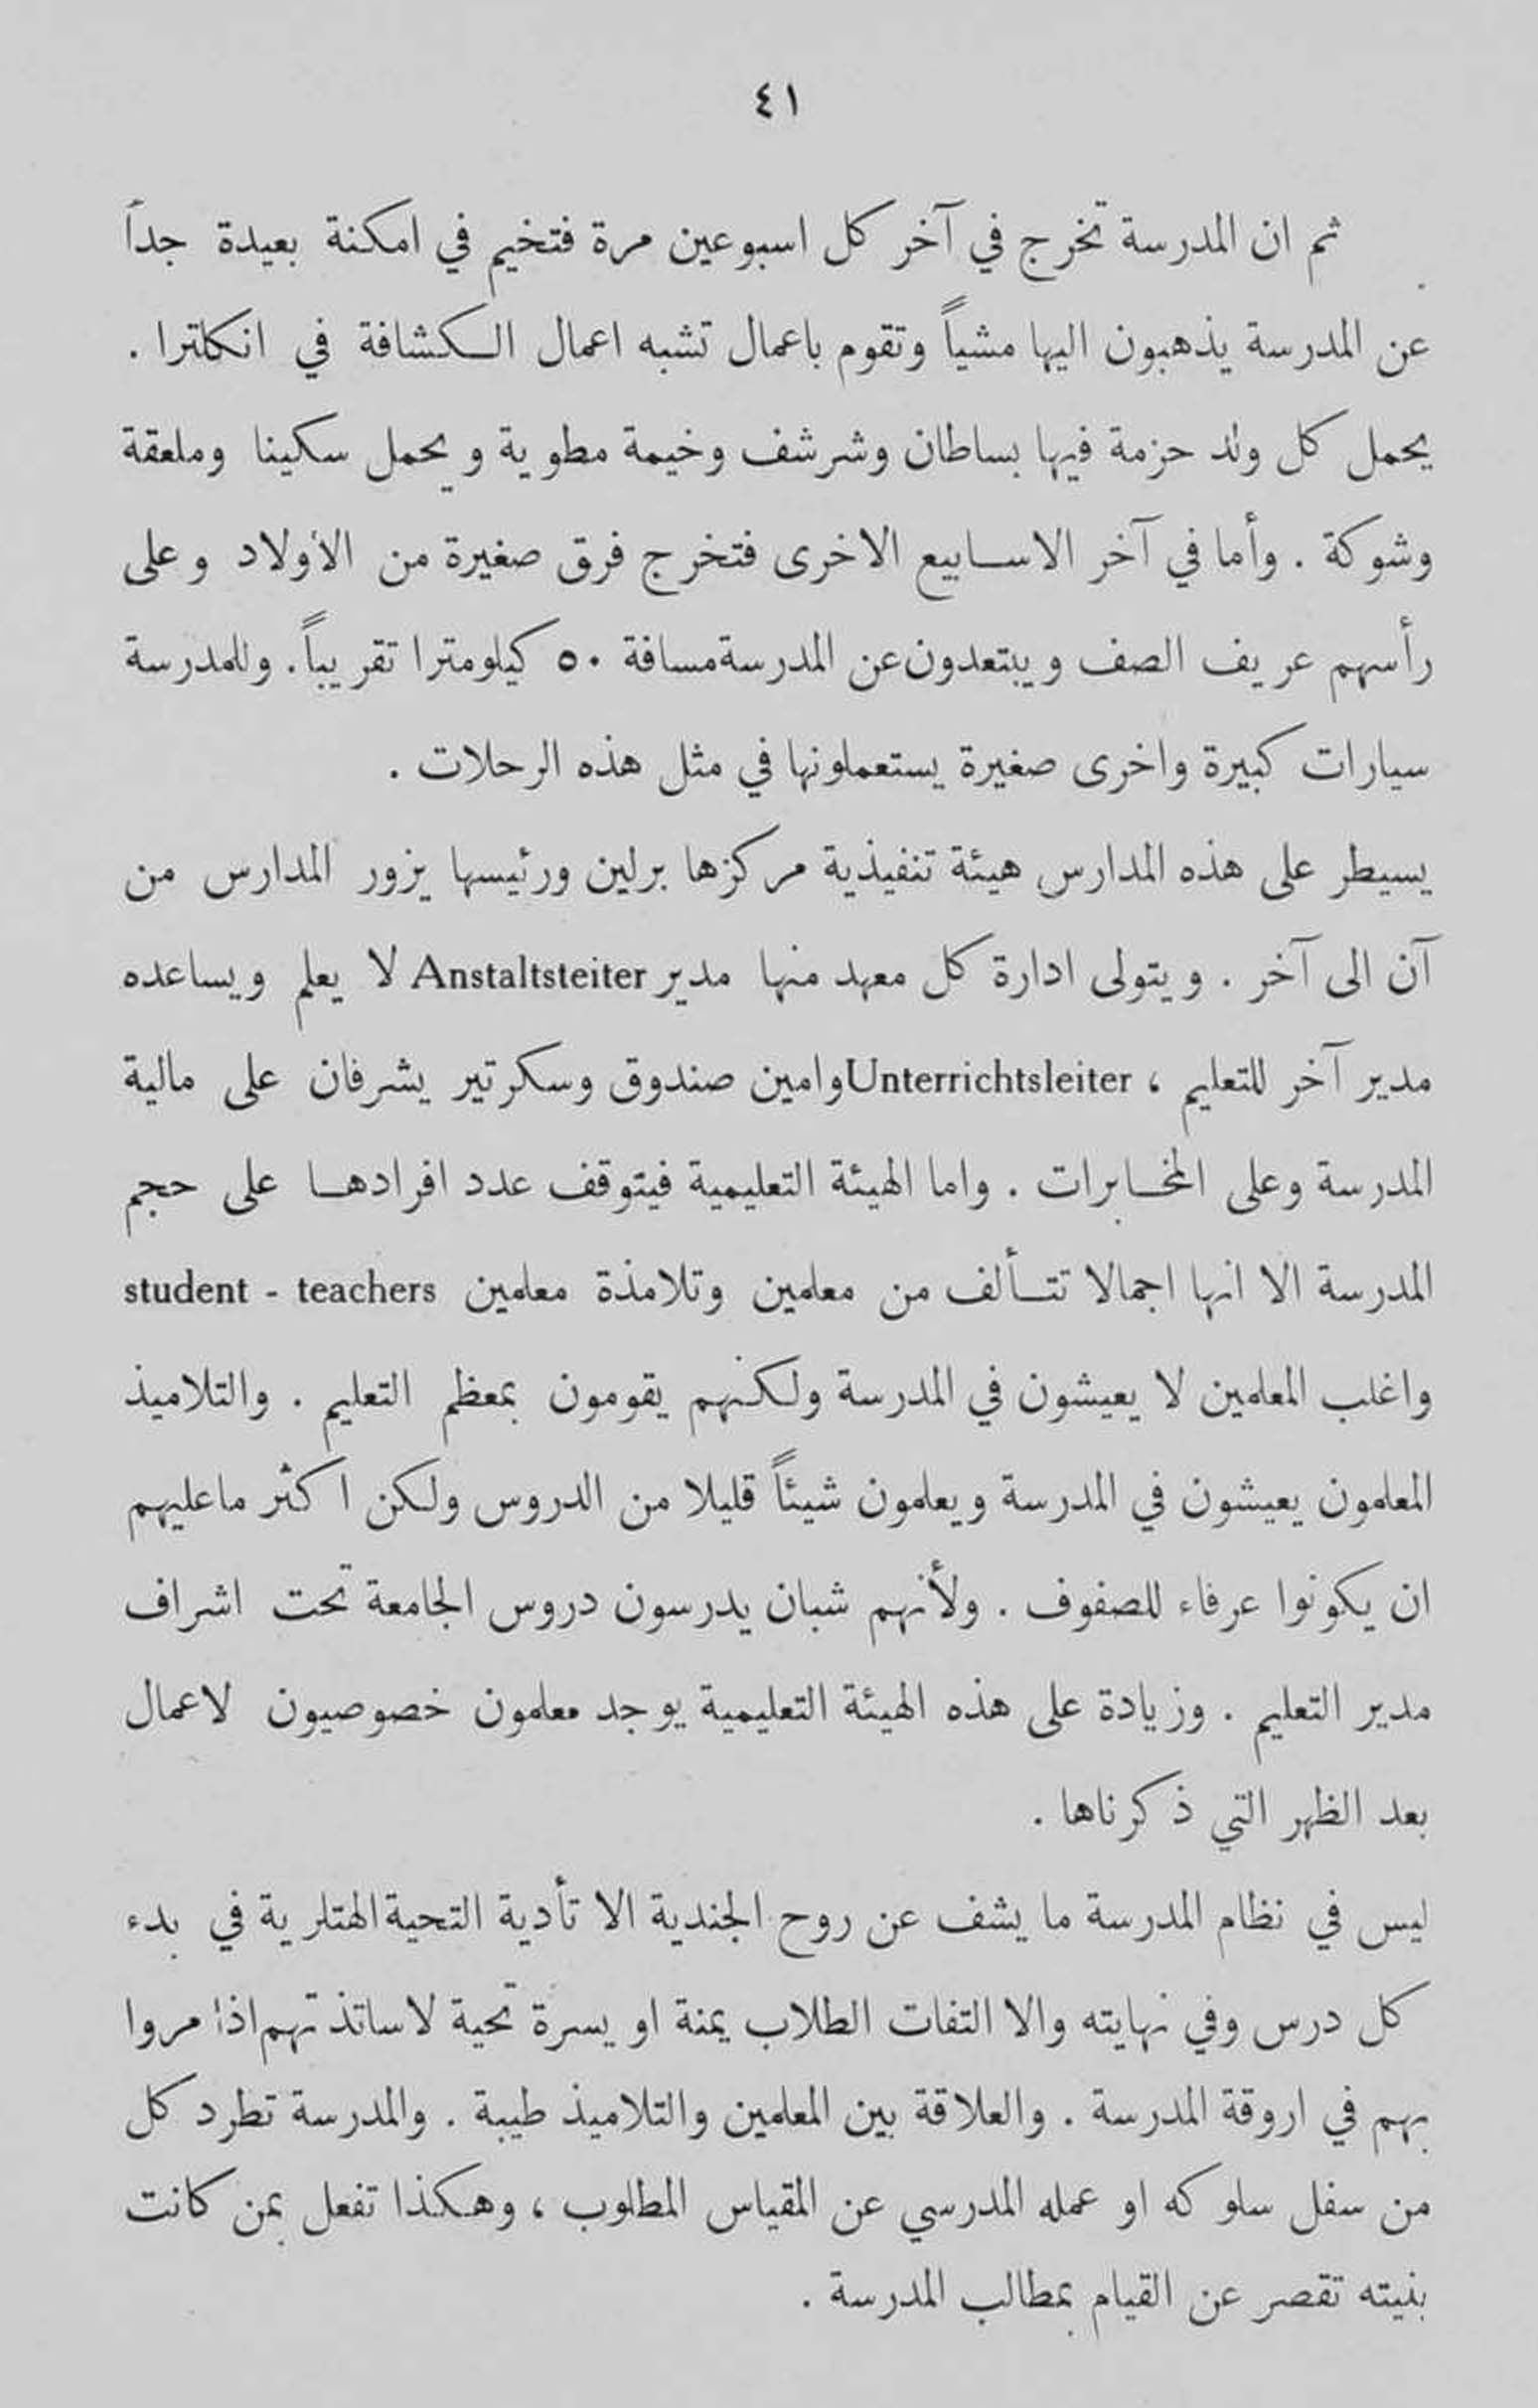 ٤١
ثم ان المدرسة تخرج في آخر كل اسبوعين مرة فتخيم في امكنة بعيدة جداً
عن المدرسة يذهبون اليها مشياً وتقوم باعمال تشبه اعمال الكشافة في انكلترا .
يحمل كل ولد حزمة فيها بساطان وشرشف وخيمة مطوية ويحمل سكينا وملعقة
وشوكة . وأما في آخر الاسابيع الاخرى فتخرج فرق صغيرة من الأولاد وعلى
رأسهم عريف الصف ويبتعدون عن المدرسة مسافة ٥٠ كيلومترا تقريباً . وللمدرسة
سيارات كبيرة واخرى صغيرة يستعملونها في مثل هذه الرحلات .
يسيطر على هذه المدارس هيئة تنفيذية مركزها برلين ورئيسها يزور المدارس من
آن الى آخر . ويتولى ادارة كل معهد منها مدير Anstaltsteiter لا يعلم ويساعده
مدير آخر للتعليم ، Unterrichtsleiter وامين صندوق وسكرتير يشرفان على مالية
المدرسة وعلى المخابرات . واما الهيئة التعليمية فيتوقف عدد افرادها على حجم
المدرسة الا انها اجمالا تتألف من معلمين وتلامذة معلمين student - teachers
واغلب المعلمين لا يعيشون في المدرسة ولكنهم يقومون بمعظم التعليم . والتلاميذ
المعلمون يعيشون في المدرسة ويعلمون شيئاً قليلا من الدروس ولكن اكثر ما عليهم
ان يكونوا عرفاء للصفوف . ولأنهم شبان يدرسون دروس الجامعة تحت اشراف
مدير التعليم . وزيادة على هذه الهيئة التعليمية يوجد معلمون خصوصيون لاعمال
بعد الظهر التي ذكرناها .
ليس في نظام المدرسة ما يشف عن روح الجندية الا تأدية التحية الهتلرية في بدء
كل درس وفي نهايته والا التفات الطلاب يمنة او يسرة تحية لاساتذتهم اذا مروا
بهم في اروقة المدرسة . والعلاقة بين المعلمين والتلاميذ طيبة . والمدرسة تطرد كل
من سفل سلوكه او عمله المدرسي عن المقياس المطلوب ، وهكذا تفعل بمن كانت
بنيته تقصر عن القيام بمطالب المدرسة .